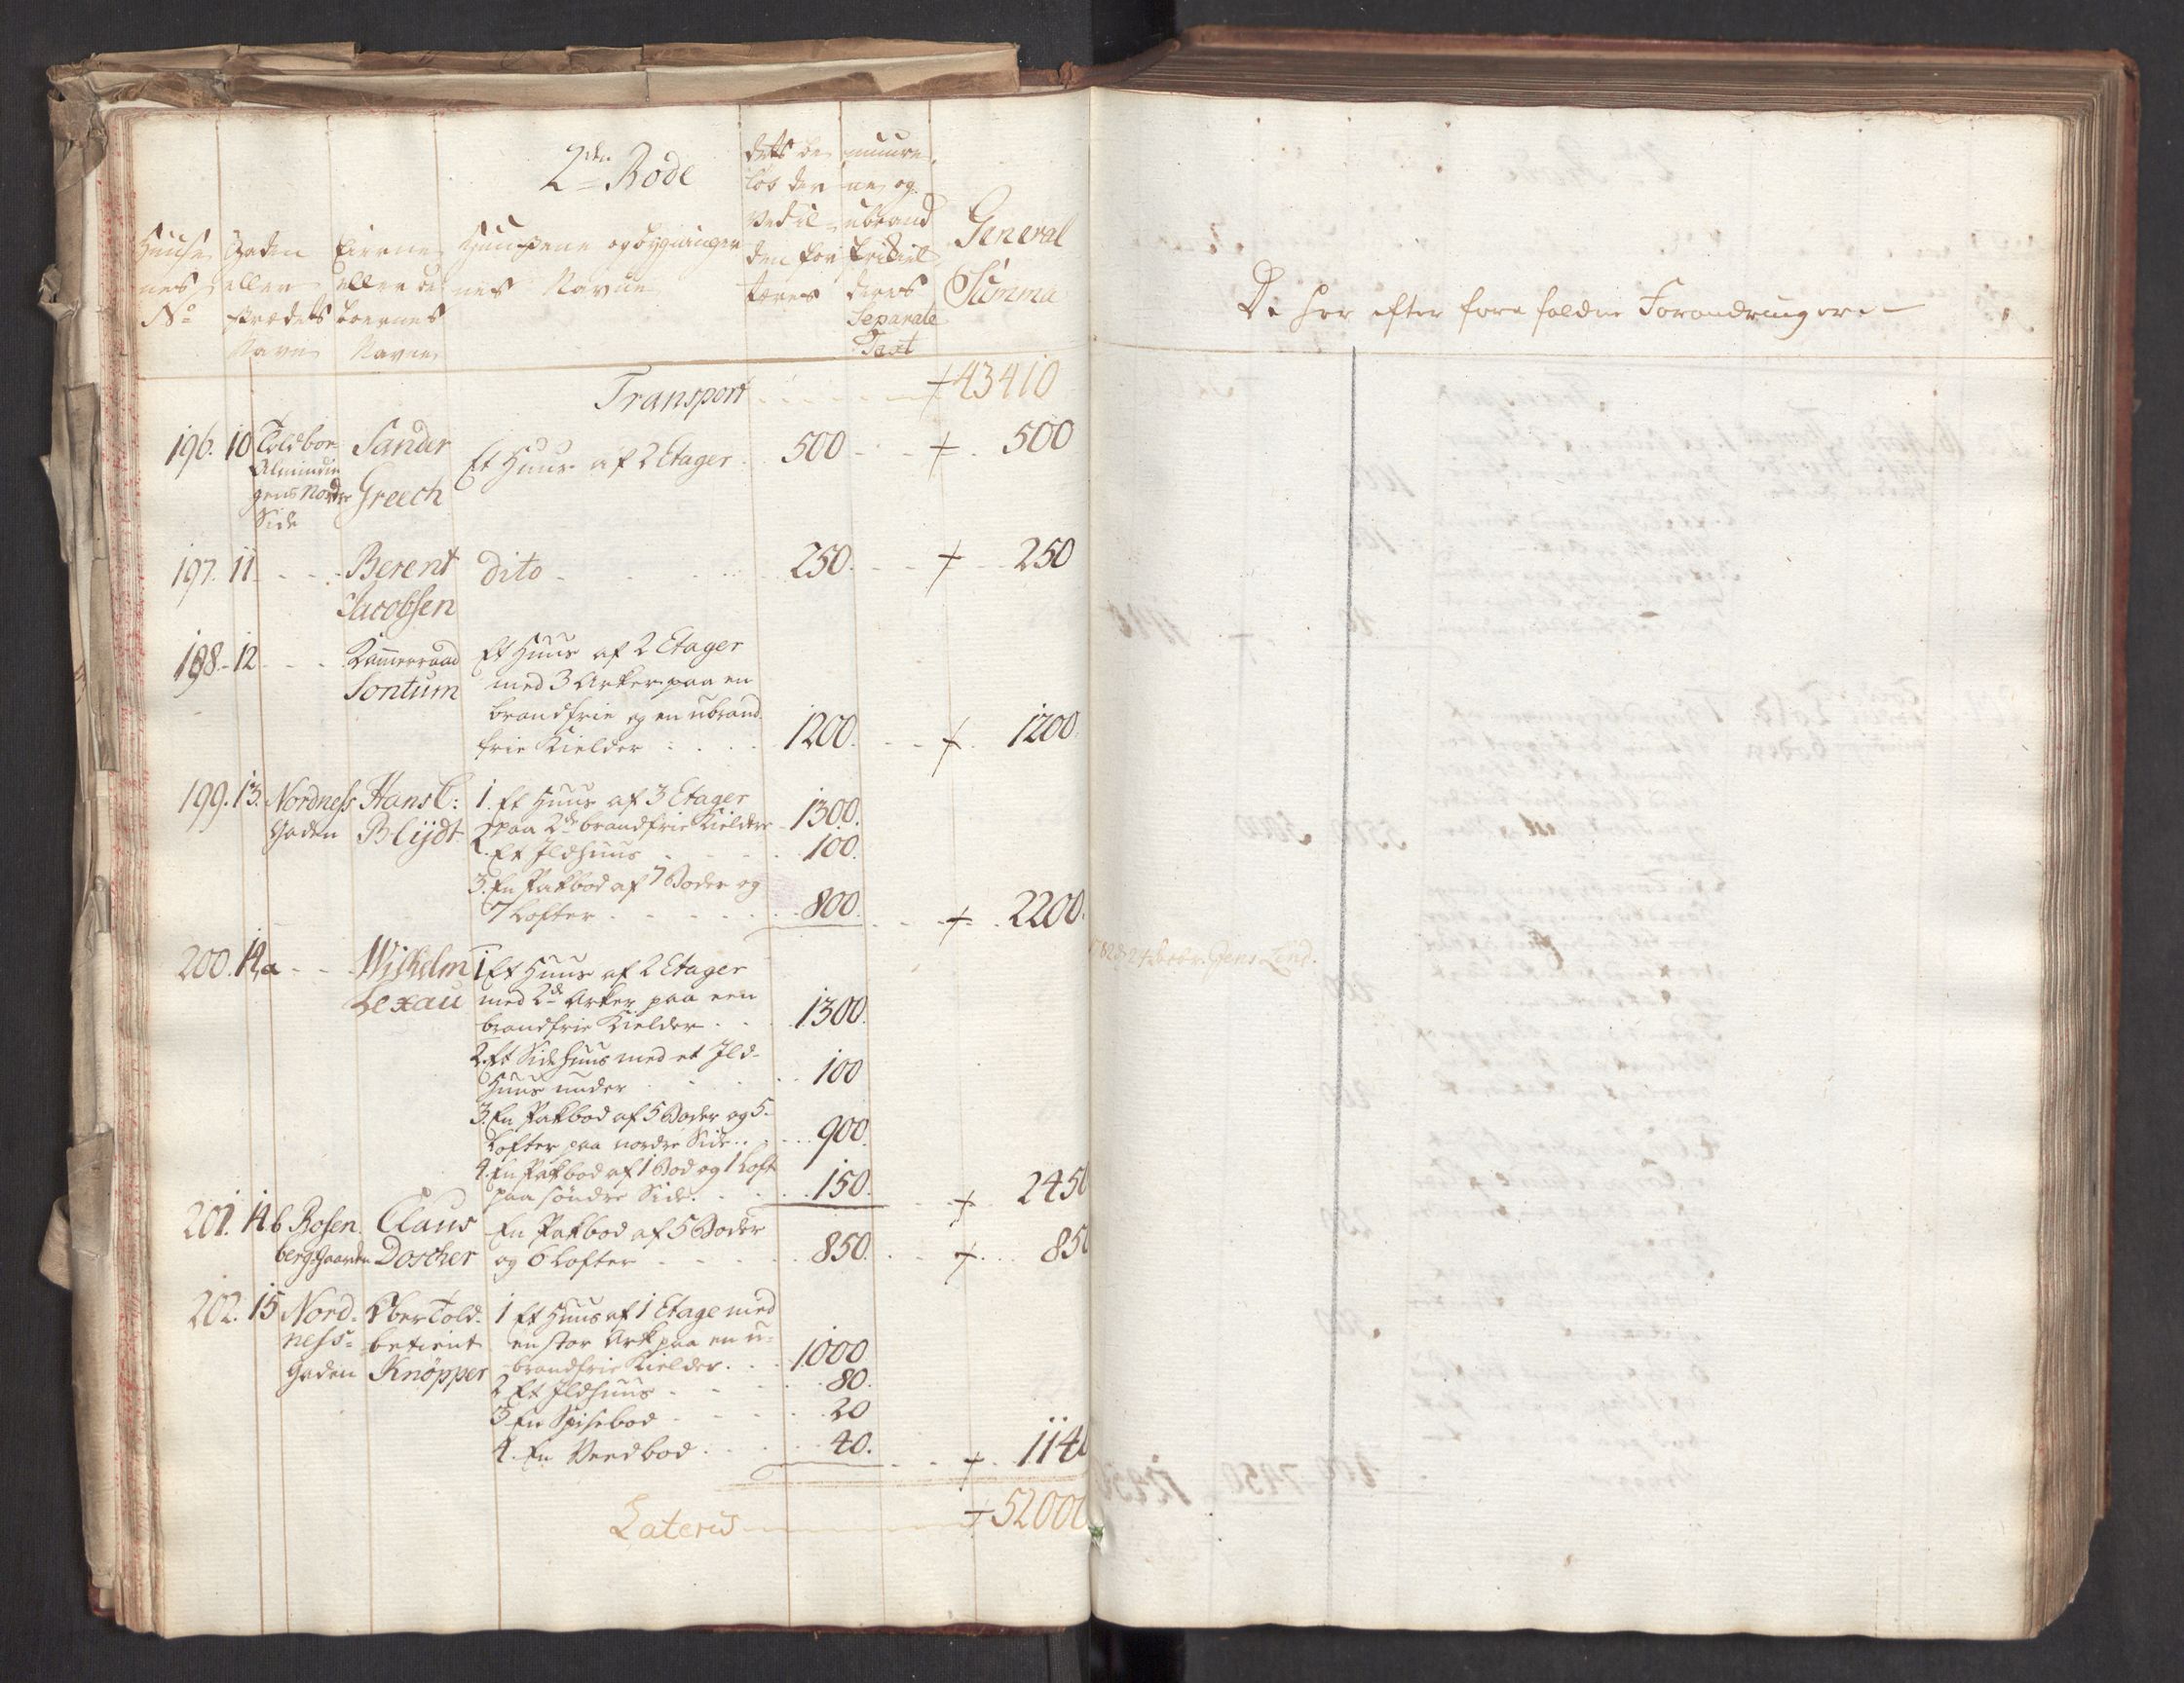 2den Rode
Huuse
nes
No
Gaden
eller
strædets
Navn
Eierne
eller be
boernes
Navne
Huusene og bygninger
nes Navne
dets be
løb der
ved il
den for
tæres
muure
ne og
ubrand
deres
Separate
Taxt
General
Summa
Transport 43410
196. 10 Toldboe Almindin gens Nordre Side Sander Greech Et Huus af 2 Etager. 500 500
197. 11 Berent Jacobsen dito 250. 250
198. 12 Kammerraad Sontum Et Huus af 2 Etager
med 3 Arker paa en
brandfrie og en ubrand
frie Kielder 1200. 1200.
199. 13. Nordness Gaden Hans C: Blijdt 1. Et Huus af 3 Etager
paa 2de brandfrie Kieldere 1300.
2. Et Ildhuus 100.
3. En Pakbod af 7 Boder og
7 Lofter 800. 2200.
200. 14,a Wilhelm Lexau 1 Et Huus af 2 Etager
med 2de Arker paa een
brandfrie Kielder 1300.
2. Et Sidehuus med et Ild-
Huus under 100
3. En Pakbod af 5 Boder og 5
Lofter paa nordre Side 900.
4. En Pakbod af 1 Bod og 1 Loft
paa søndre Side 150. 2450
201. 14 b Rosen berg Gaarden Claus Doscher En Pakbod af 5 Boder
og 6 Lofter 850. 850
202. 15 Nord- ness- Gaden Ober Told- betient Knöpper 1 Et Huus af 1 Etage med
en stor Ark paa en u-
brandfrie Kielder 1000
2 Et Ildhuus 80.
3 En Spisebod 20
4. En Vedbod 40. 1140
Lateris 52000
De her efter fore faldne Forandringere